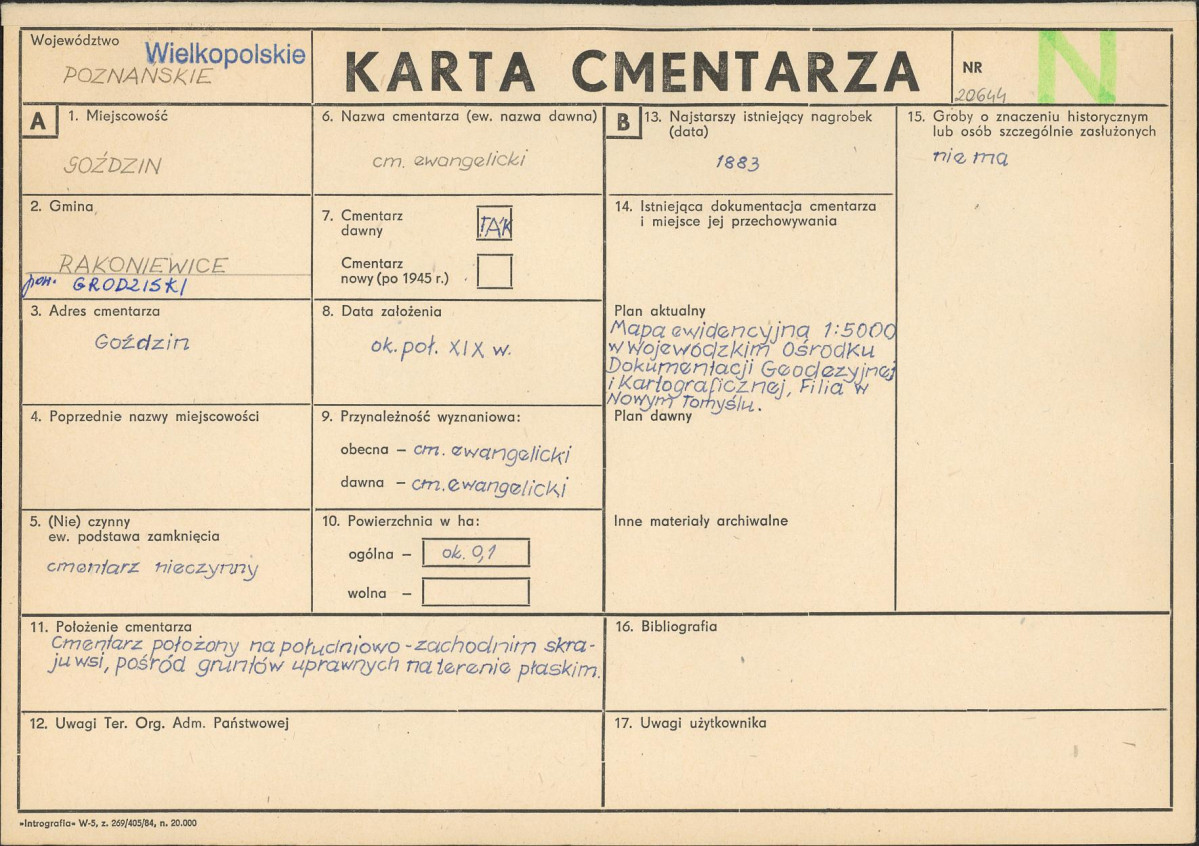 Województwo
Wielkopolskie
POZNAŃSKIE
KARTA CMENTARZA
NR
20644
N
A
1. Miejscowość
GOŹDZIN
2. Gmina
RAKONIEWICE
pow. GRODZISKI
3. Adres cmentarza
Goździn
4. Poprzednie nazwy miejscowości
5. (Nie) czynny
ew. podstawa zamknięcia
cmentarz nieczynny
6. Nazwa cmentarza (ew. nazwa dawna)
cm. ewangelicki
7. Cmentarz
dawny
TAK
Cmentarz
nowy (po 1945 r.)
8. Data założenia
ok. poł. XIX w.
9. Przynależność wyznaniowa:
obecna – cm. ewangelicki
dawna – cm. ewangelicki
10. Powierzchnia w ha:
ogólna – ok. 0,1
wolna –
11. Położenie cmentarza
Cmentarz położony na południowo-zachodnim skra-
ju wsi, pośród gruntów uprawnych na terenie płaskim.
12. Uwagi Ter. Org. Adm. Państwowej
B
13. Najstarszy istniejący nagrobek
(data)
1883
14. Istniejąca dokumentacja cmentarza
i miejsce jej przechowywania
Plan aktualny
Mapa ewidencyjna 1:5000
w Wojewódzkim Ośrodku
Dokumentacji Geodezyjnej
i Kartograficznej, Filia w
Nowym Tomyślu.
Plan dawny
Inne materiały archiwalne
15. Groby o znaczeniu historycznym
lub osób szczególnie zasłużonych
nie ma
16. Bibliografia
17. Uwagi użytkownika
»Intrografia« W-5, z. 269/405/84, n. 20.000